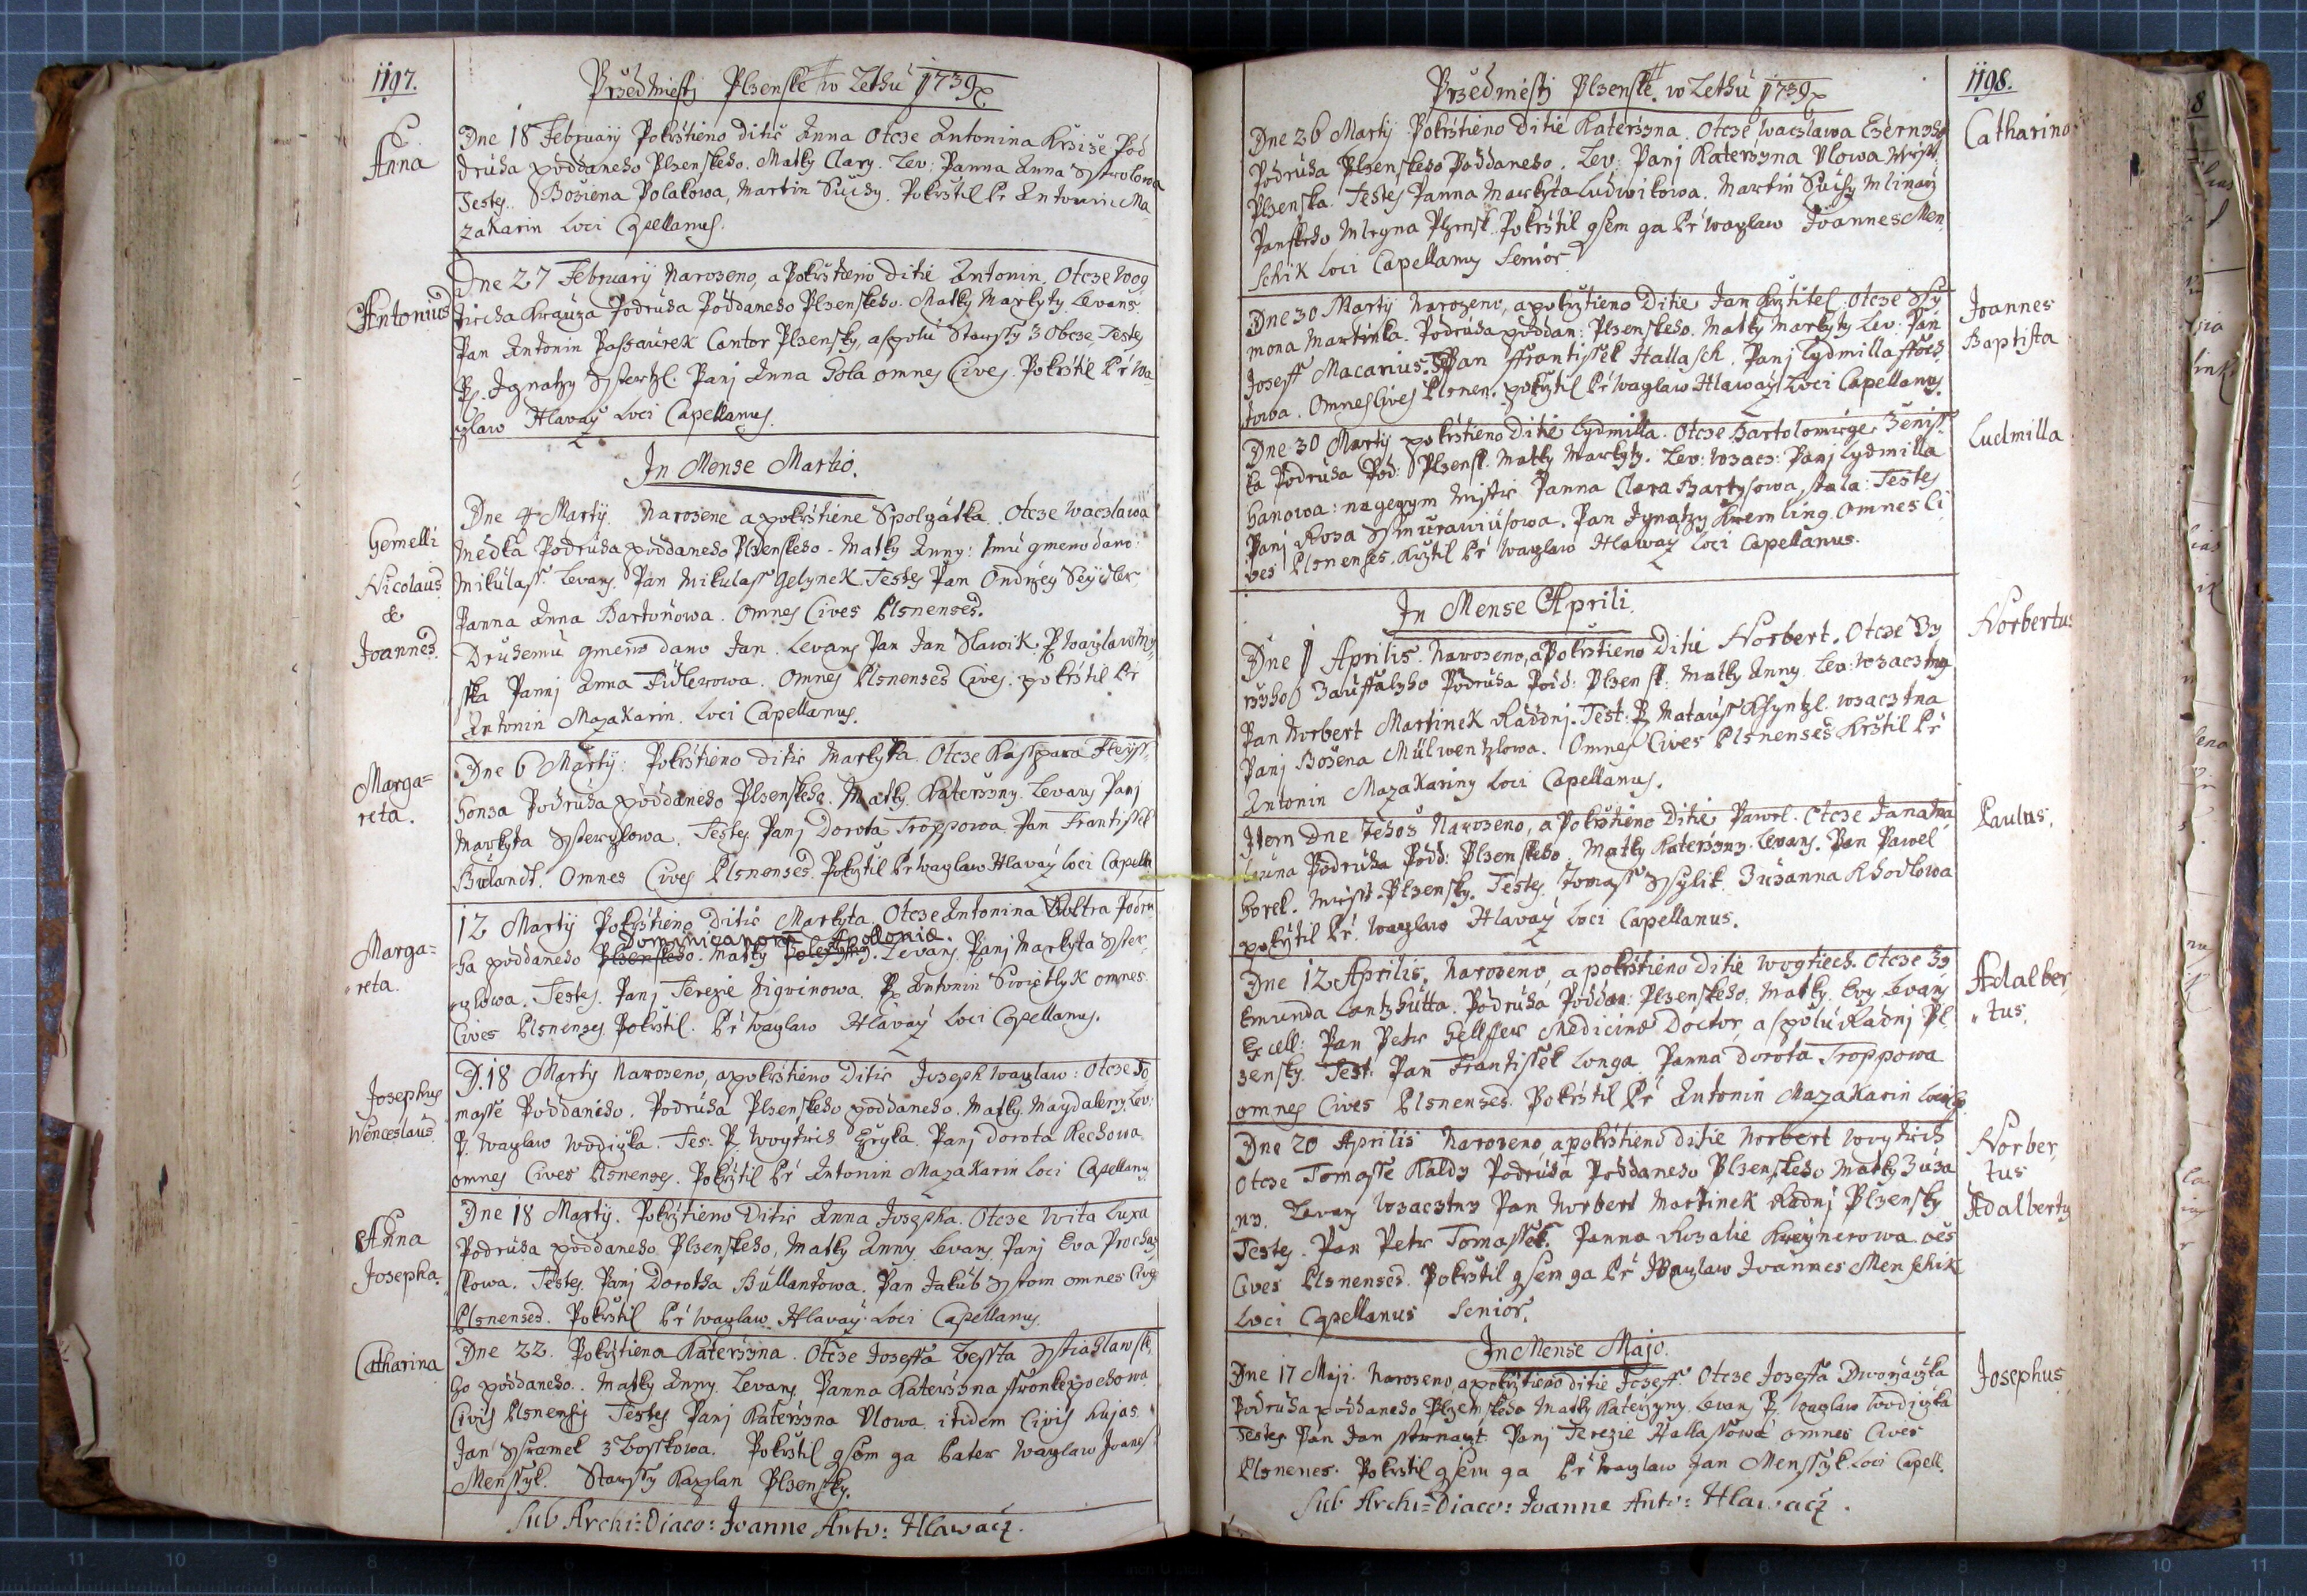 1197.
Przedmiestj Plzenske w Lethu 1739
Anna
Dne 18 February Pokrstieno ditie Anna Otcze Antonina Pod
druha poddaneho Plzenskeho. Matky Clary. Lev: Panna Anna
Testes. Boziena Polakowa, Martin Suchy. Pokrstil Pr Antonin Ma
zakarin Loci Capellanus.
Antonius
Dne 27 February Narozeno, a Pokrstieno ditie Antonin. Otcze Wog
tiecha Krauza Podruha Poddaneho Plzenskeho. Matky Markyty Levans
Pan Antonin Passaurek Cantor Plzensky, a spolu Starssy z Obcze, Testes
P. Ignatzy Pani Anna omnes Cives. Pokrstil Pr Wa
czlaw Hlavaý Loci Capellanus.
In Mense Martio.
Gemelli
Nicolaus
&
Joannes
Dne 4 Martij Narozene a pokrstiene Spolczatka. Otcze Waczlawa
Medka Podruha poddaneho Plzenskeho. Matky Anny: 1mu gmeno dano:
Mikulass. Levans. Pan Mikulass Gelynek. Testes Pan Ondrzey Seydler,
Panna Anna Bartonowa. Omnes Cives Plsnenses.
Druhemu gmeno dano Jan. Levans Pan Jan Slawik. P.
ska Pannj Anna Fidlerowa. Omnes Plsnenses Cives. pokrstil Pr
Antonin Mazakarin. Loci Capellanus.
Marga=
reta.
Dne 6 Martij: Pokrstieno ditie Markyta. Otcze Kasspara
honza Podruha poddaneho Plzenskeho. Matky Katerzzny. Levans Panj
Markyta Testes Panj Dorota Troppowa. Pan Frantissek
Bulandt. Omnes Cives Plsnenses. Pokrztil Pr Waczlaw Hlavaý Loci Capella
Marga=
reta.
12 Martij Pokrstieno Ditie Markyta. Otcze Antonina Podru
Dominicanom Apollonie.
ha poddaneho Plzenskeho. Matky Levans Panj Markyta
Testes. Panj Terezie P. Antonin Swietlyk omnes
Cives Plsnenses Pokrstil. Pr Waczlaw Hlavaý Loci Capellanus.
Josephus
Wenceslaus
D. 18 Martij Narozeno, a pokrstieno Ditie Joseph Waczlaw: Otcze To
masse Poddaneho. Podruha Plzenskeho poddaneho. Matky Magdaleny. Lev:
P. Waczlaw Wodiczka. Tes: P. Woytiech Panj Dorota Kechowa
omnes Cives Plsnenses. Pokrztil Pr Antonin Mazakarin Loci Capellanus
Anna
Josepha.
Dne 18 Martij. Pokrztieno Ditie Anna Josepha. Otcze Wita Luxa
Podruha poddaneho Plzenskeho, Matky Anny Levans Panj Eva Prochas
kowa. Testes. Panj Dorotha Bullantowa. Pan Jakub omnes Cives
Plsnenses. Pokrstil Pr Waczlaw Hlavaý Loci Capellanus
Catharina
Dne 22. Pokrztiena Katerzzna. Otcze Joseffa Lessta
ho poddaneho. Matky Anny. Levans Panna Katerzzna
Civis Plsnensis Testes Panj Katerzzna Vlowa itidem Civis hujas
Jan Sramek z Bosskowa. Pokrstil gsem ga Pater Waczlaw Joanes
Menssyk. Starssy Kaplan Plzensky.
Sub Archi=Diaco: Joanne Anto: Hlawacz.
1198.
Przedmiestj Plzenske w Lethu 1739
Catharina
Dne 26 Martij Pokrstieno Ditie Katerzzna. Otcze Waczlawa Czerneho
Podruha Plzenskeho Poddaneho. Lev: Panj Katerzyna Vlowa
Plzenska. Testes Panna Markyta Ludwikowa. Martin Suchy Mlinarz
Panskeho Mleyna Plzensk. Pokrstil gsem ga Pr Waczlaw Joannes Men
schik Loci Capellanus Senior
Joannes
Baptista
Dne 30 Martij Narozeno, a pokrztieno Ditie Jan Krztitel. Otcze Ssy
mona Martinka. Podruha poddan: Plzenskeho. Matky Markyty Lev: Pan
Joseff Macarius. Pan Frantissek Hallasch. Panj Lydmilla
Omnes Cives Plsnen. pokrztil Pr Waczlaw Hlawaý Loci Capellanus.
Ludmilla
Dne 30 Martij pokrstieno Ditie Lydmilla. Otcze Bartolomiege Zeniss
ka Podruha Pod: Plzensk. Matky Markyty. Lev: Wzacz: Panj Lydmilla
hanowa: na gegym mistie Panna Clara Bartysowa stala: Testes
Panj Rosa Pan Ignatzy Kremling. Omnes Ci
ves Plsnenses. Krztil Pr Waczlaw Hlaway Loci Capellanus.
In Mense Aprili.
Norbertus
Dne 1 Aprilis. Narozeno, a Pokrstieno Ditie Norbert. Otcze
Zauffalyho Podruha Podd: Plzensk. Matky Anny. Lev: Wzacztny
Pan Norbert Martinek Raddnj. Test: P. Matauss Wzacztna
Panj Bozena Mülwentzlowa. Omnes Cives Plsnenses Krstil Pr
Antonin Mazakariny Loci Capellanus.
Paulus.
Item Dne Tehoz Narozeno, a Pokrstieno Ditie Pawel. Otcze Jana Ma
Podruha Podd: Plzenskeho. Matky Katerzzny. Levans. Pan Pawel
Horek. Miesst. Plzensky. Testes Tomass Zuzanna Khodlowa
pokrztil Pr. Waczlaw Hlavaý Loci Capellanus.
Adalber,
tus.
Dne 12 Aprilis. Narozeno, a pokrstieno Ditie Wogtiech. Otcze Zy
kmunda Lantzhutta. Podruha Poddan: Plzenskeho. Matky Evy Levans
Excell: Pan Petr Helffer Medicinae Doctor, a spolu Radnj Pl
zensky. Test: Pan Frantissek Longa. Panna Dorota Troppowa
omnes Cives Plsnenses. Pokrstil Pr Antonin Mazakarin Loci
Norber,
tus
Adalbertus
Dne 20 Aprilis Narozeno a pokrstieno ditie Norbert Woytiech
Otcze Tomasse Kaldy Podruha Poddaneho Plzenskeho Matky Zuza
ny. Levans Wzacztny Pan Norbert Martinek Radnj Plzensky
Testes. Pan Petr Tomassek. Panna Rozalie Kreynerowa. oēs
Cives Plsnenses. Pokrstil gsem ga Pr Waczlaw Joannes Menschik
Loci Capellanus Senior.
In Mense Majo.
Josephus
Dne 17 Maji. Narozeno, a pokrztieno ditie Joseff. Otcze Joseffa Dworzaczka
Podruha poddaneho Plzenskeho Matky Katerzyny. Levans P. Waczlaw Wodiczka
Testes Pan Jan Panj Terezie Hallassowa omnes Cives
Plsnenes. Pokrstil gsem ga Pr Waczlaw Jan Menssyk. Loci Capell.
Sub Archi=Diaco: Joanne Anto: Hlawacz.